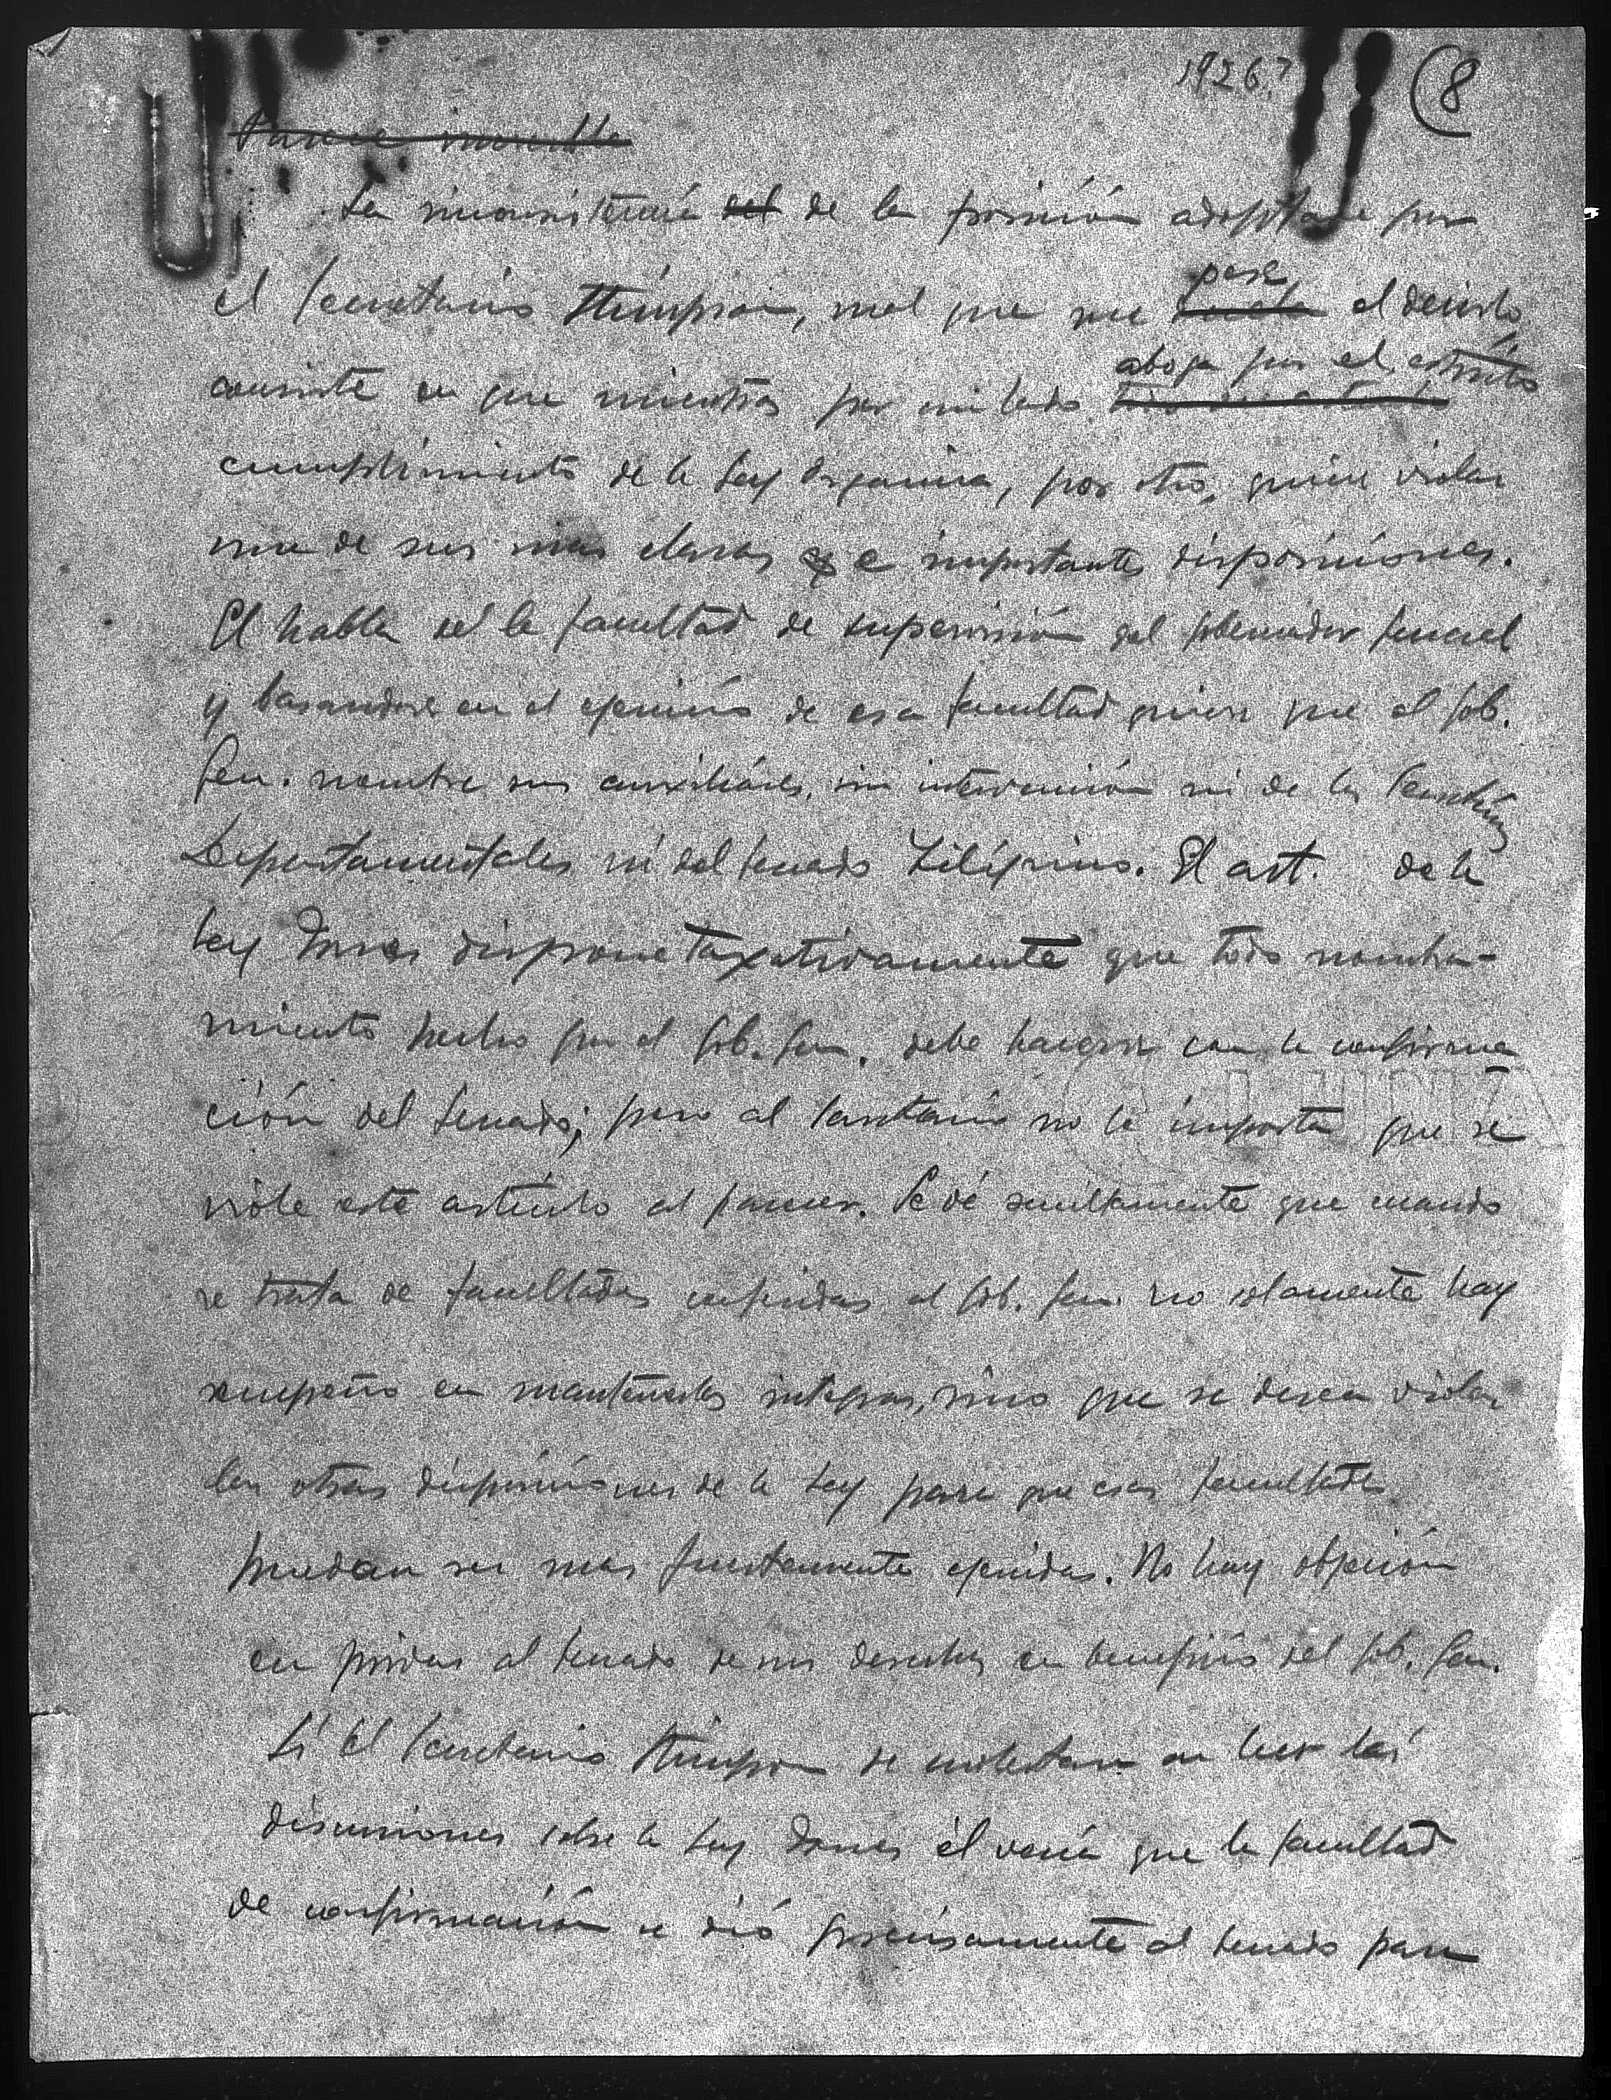 1926?
(8
Parece increíble
La inconsistencia del de la posición adoptada por
el Secretario Stimpson, mal que me pese el decirlo,
consiste en que mientras por un lado aboga por el estricto
cumplimiento de la Ley Organica, por otro, quiere violar
una de sus mas claras y e importantes disposiciones.
El habla de la facultad de supervisión del Gobernador General
y basandose en el ejercicio de esa facultad quiere que el Gob.
Gen. nombre sus auxiliares, sin intervención ni de los Secretarios
Departamentales ni del Senado Filipino. El art. de la
Ley Jones dispone taxativamente que todo nombra-
miento hecho por el Gob. Gen. debe hacerse con la confirma
ción del Senado; pero al Secretario no le importa que se
viole este artículo al parecer. Se vé sencillamente que cuando
se trata de facultades conferidas al Gob. Gen. no solamente hay
empeño en mantenerlas integras, sino que se desea violar
las otras disposiciones de la Ley para que esas facultades
puedan ser mas fuertemente ejercidas. No hay objeción
en privar al Senado de sus derechos en beneficio del Gob. Gen.
Si el Secretario Stimpson se molestara en leer las
discusiones sobre la Ley Jones él vería que la facultad
de confirmación se dió precisamente al Senado para